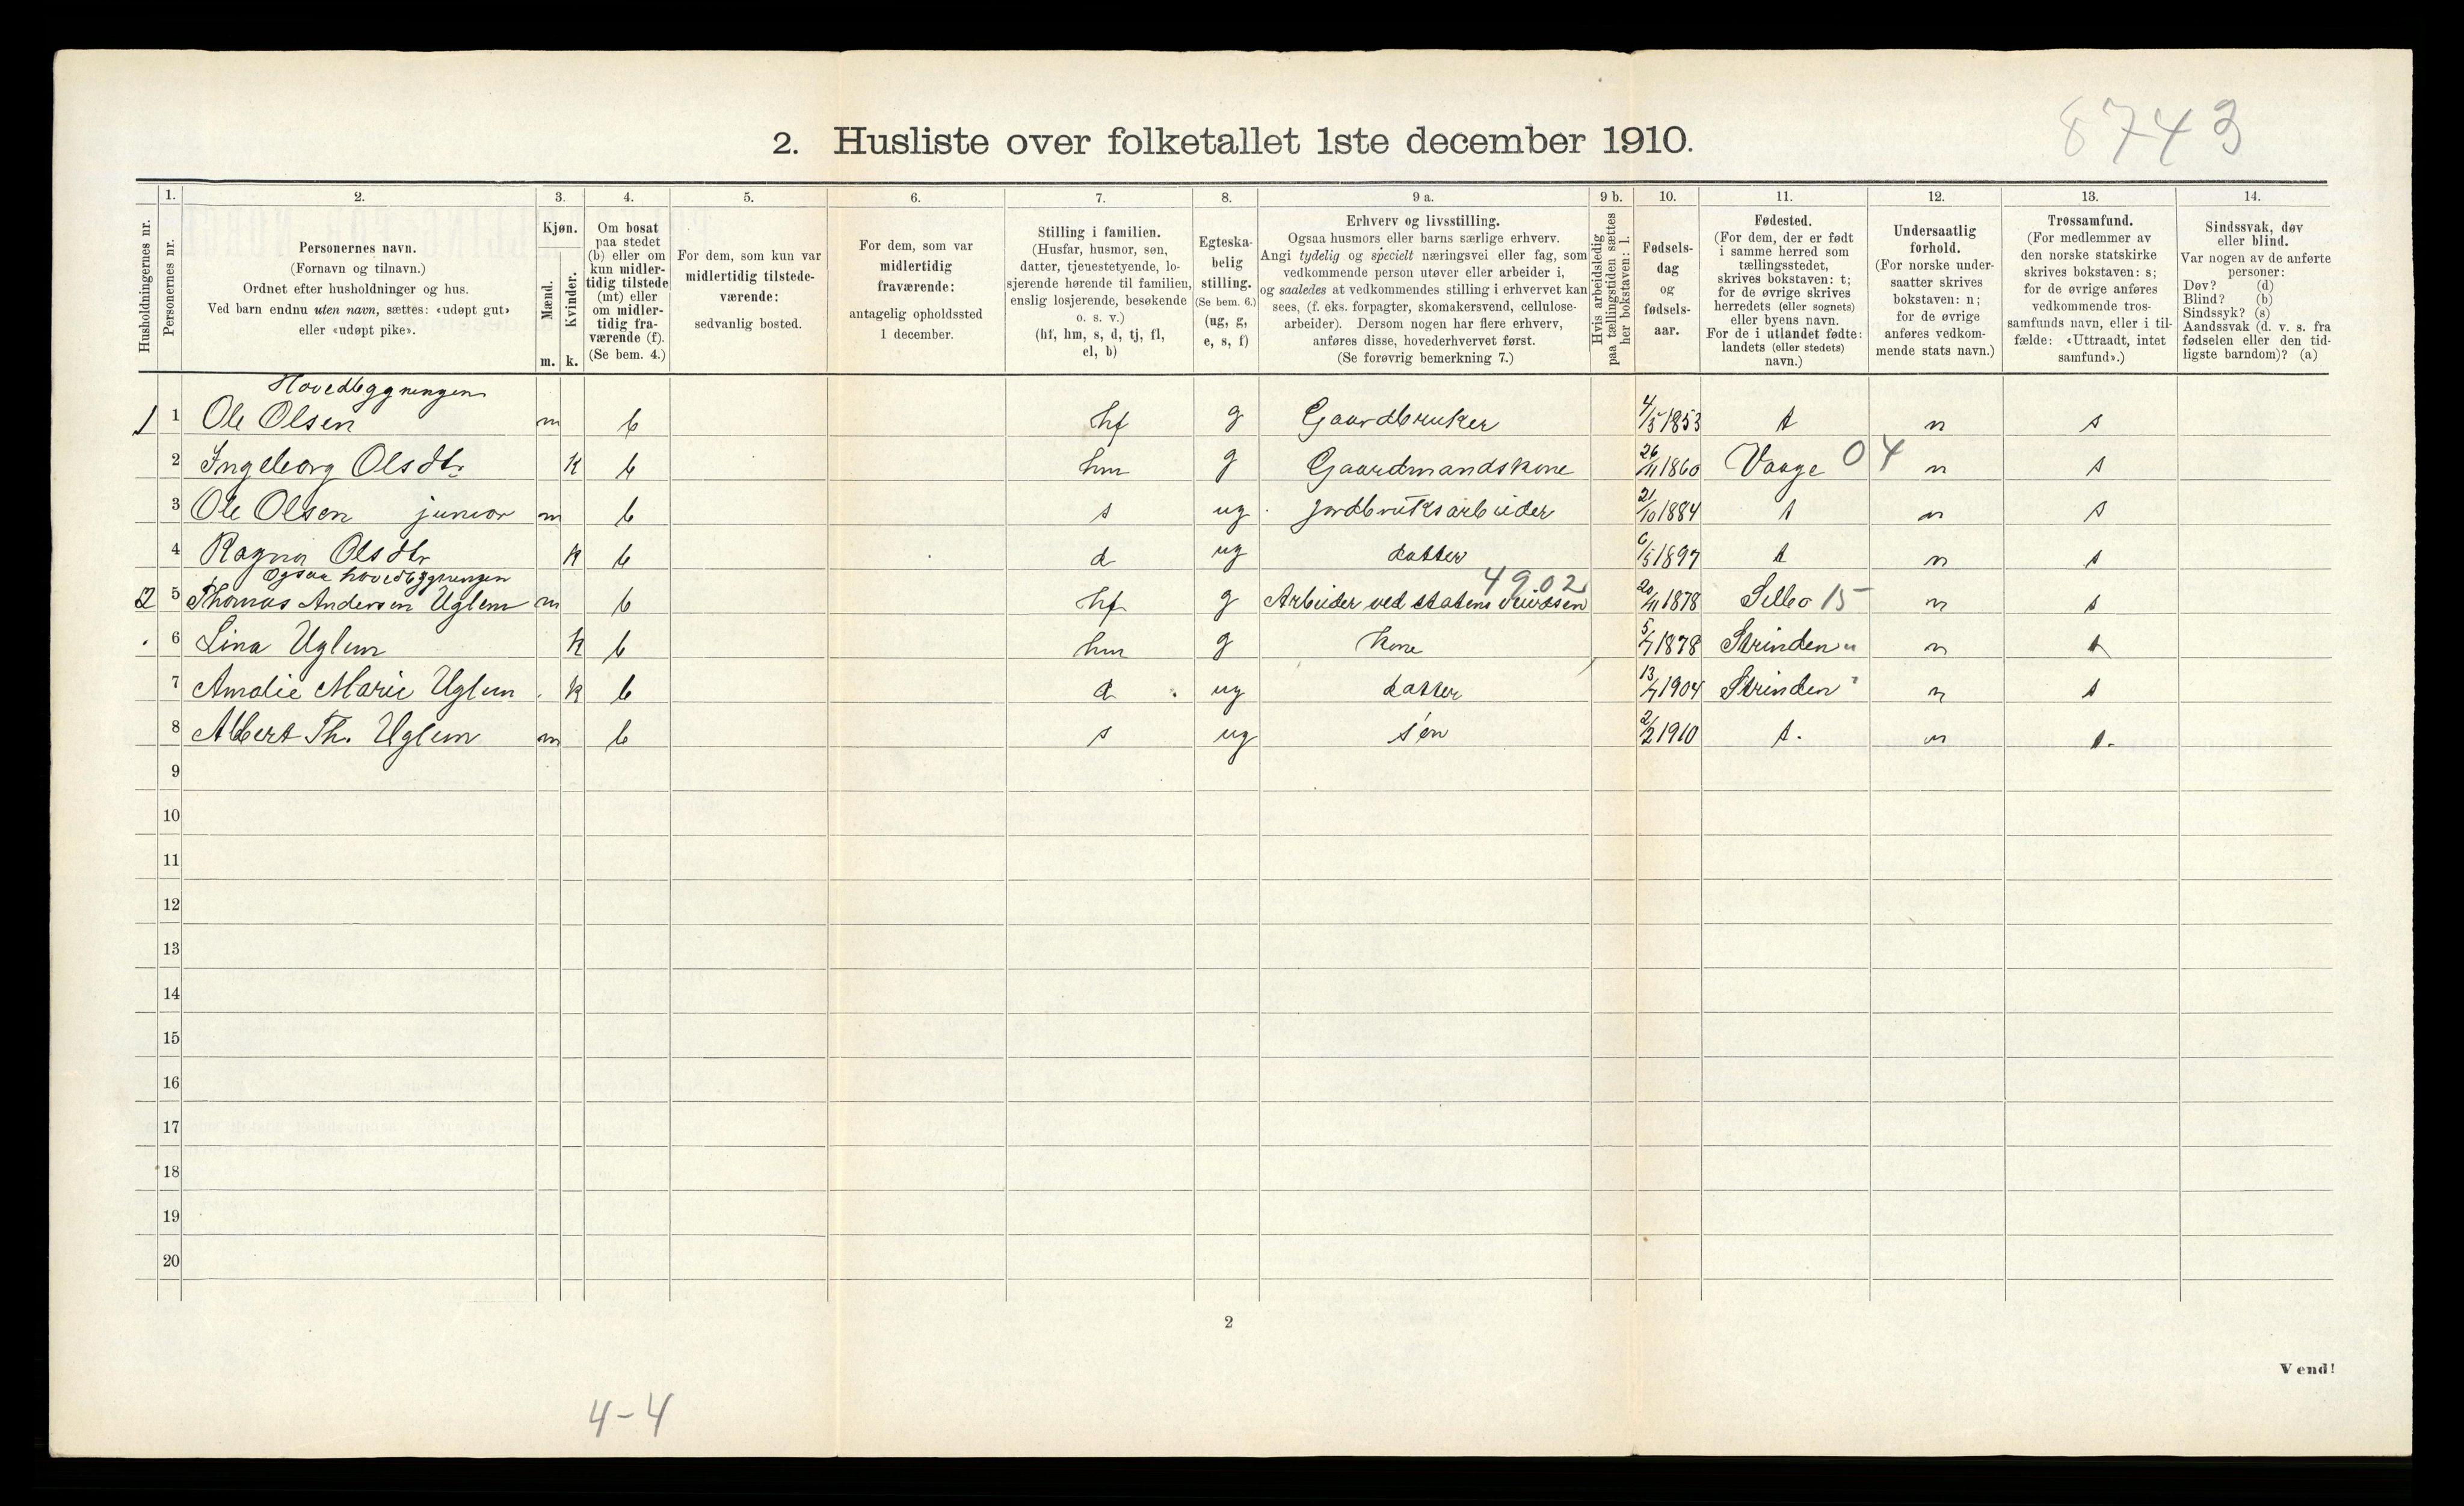 8743
2. Husliste over folketallet 1ste december 1910.
1. 2. 3. 4. 5. 6. 7. 8. 9 a. 9 b. 10. 11. 12. 13. 14.
Husholdningernes nr.
Personernes nr.
Personernes navn.
(Fornavn og tilnavn.)
Ordnet efter husholdninger og hus.
Ved barn endnu uten navn, sættes: «udøpt gut»
eller «udøpt pike».
Kjøn.
Mænd.
Kvinder.
m. k.
Om bosat
paa stedet
(b) eller om
kun midler-
tidig tilstede
(mt) eller
om midler-
tidig fra-
værende (f).
(Se bem. 4.)
For dem, som kun var
midlertidig tilstede-
værende:
sedvanlig bosted.
For dem, som var
midlertidig
fraværende:
antagelig opholdssted
1 december.
Stilling i familien.
(Husfar, husmor, søn,
datter, tjenestetyende, lo-
sjerende hørende til familien,
enslig losjerende, besøkende
o. s. v.)
(hf, hm, s, d, tj, fl,
el, b)
Egteska-
belig
stilling.
(Se bem. 6.)
(ug, g,
e, s, f)
Erhverv og livsstilling.
Ogsaa husmors eller barns særlige erhverv.
Angi tydelig og specielt næringsvei eller fag, som
vedkommende person utøver eller arbeider i,
og saaledes at vedkommendes stilling i erhvervet kan
sees, (f. eks. forpagter, skomakersvend, cellulose-
arbeider). Dersom nogen har flere erhverv,
anføres disse, hovederhvervet først.
(Se forøvrig bemerkning 7.)
Hvis arbeidsledig
paa tællingstiden sættes
her bokstaven: l.
Fødsels-
dag
og
fødsels-
aar.
Fødested.
(For dem, der er født
i samme herred som
tællingsstedet,
skrives bokstaven: t;
for de øvrige skrives
herredets (eller sognets)
eller byens navn.
For de i utlandet fødte:
landets (eller stedets)
navn.)
Undersaatlig
forhold.
(For norske under-
saatter skrives
bokstaven: n;
for de øvrige
anføres vedkom-
mende stats navn.)
Trossamfund.
(For medlemmer av
den norske statskirke
skrives bokstaven: s;
for de øvrige anføres
vedkommende tros-
samfunds navn, eller i til-
fælde: «Uttraadt, intet
samfund».)
Sindssvak, døv
eller blind.
Var nogen av de anførte
personer:
Døv? (d)
Blind? (b)
Sindssyk? (s)
Aandssvak (d. v. s. fra
fødselen eller den tid-
ligste barndom)? (a)
Hovedbygningen
1 1 Ole Olsen m b hf g Gaardbruker 4/5 1853 t n s
2 Ingeborg Olsdtr k b hm g Gaardmandskone 26/11 1860 Vaage 04 n s
3 Ole Olsen junior m b s ug jordbruksarbeider 21/10 1884 t n s
4 Ragna Olsdtr k b d ug datter 6/5 1897 t n s
Ogsaa hovedbygningen 4902
2 5 Thomas Andersen Uglem m b hf g Arbeider ved statens 20/11 1878 Selbo 15 n s
6 Lina Uglem k b hm g Kone 5/7 1878 Strinden " n s
7 Amalie Marie Uglem k b d ug datter 13/7 1904 Strinden " n s
8 Albert Th. Uglem m b s ug søn 2/2 1910 t. n s.
9
10
11
12
13
14
15
16
17
18
19
20
2
Vend!
4-4